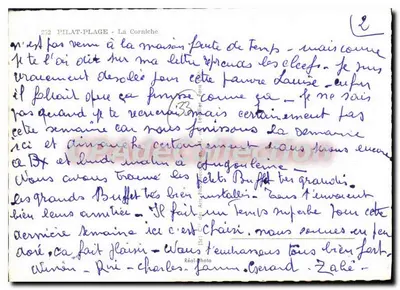 253 PILAT-PLAGE - La Corniche
2
n'est pas venu à la maison faute de temps - mais comme
je te l'ai dit sur ma lettre les clefs. Je suis
vraiment désolée pour cette pauvre Louise - enfin
il fallait que ça finisse comme ça - Je ne sais
pas quand je te reverrai mais certainement pas
cette semaine car nous finissons la semaine
ici et dimanche certainement nous serons encore
à Bx et lundi matin à Angoulème -
Nous avons trouvé les petits Buffet très grandis.
les grands Buffet très bien installés. Tous t'envoient
bien leurs amitiés - Il fait un temps superbe pour cette
dernière semaine ici c'est choisi. nous sommes un peu
doré, ça fait plaisir - Nous t'embrassons tous bien fort
- Charles - Gérard -
Réal-Photo